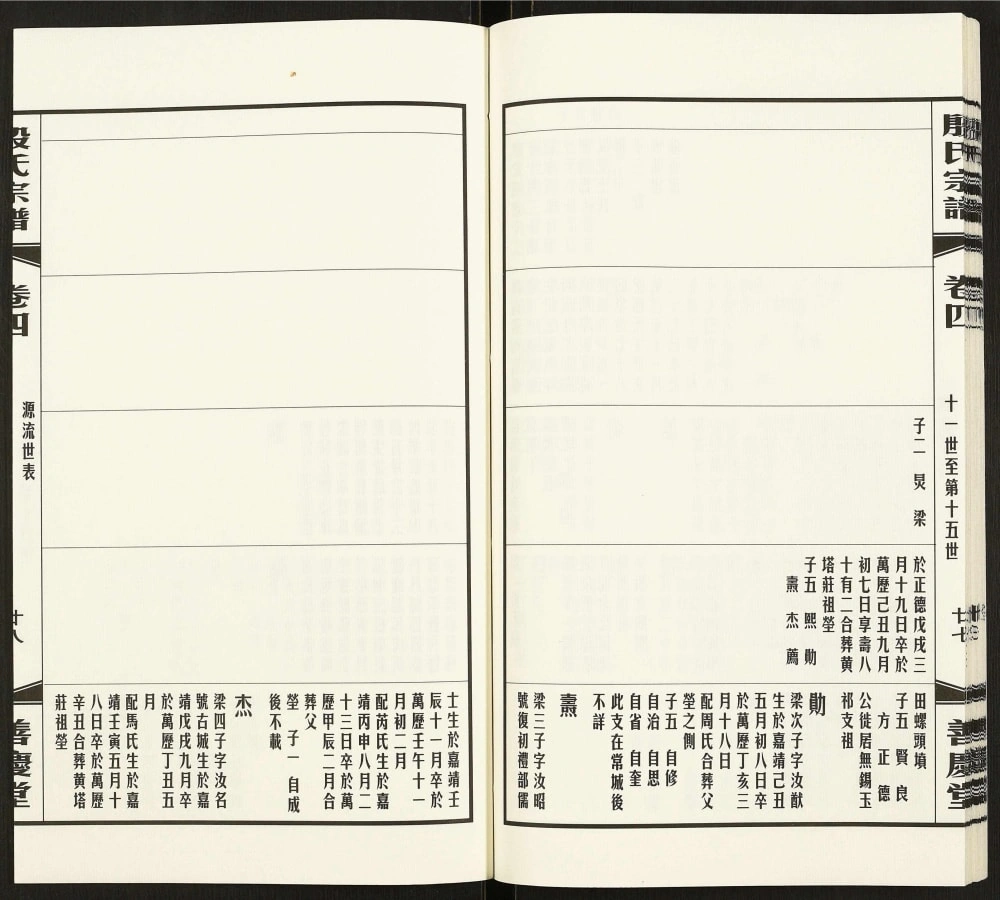 殷氏宗譜
卷四
十一世至第十五世
廿七
善慶堂
子二　炅　梁
於正德戊戌三
月十九日卒於
萬歷己丑九月
初七日享壽八
十有二合葬黄
塔莊祖塋
子五　熙　勛
燾　杰　薦
田螺頭墳
子五　賢　良
方　正　德
公徙居無錫玉
祁支祖
勛
梁次子字汝猷
生於嘉靖己丑
五月初八日卒
於萬歷丁亥三
月十八日
配周氏合葬父
塋之側
子五　自修
自治　自思
自省　自奎
此支在常城後
不詳
燾
梁三子字汝昭
號復初禮部儒
士生於嘉靖壬
辰十一月卒於
萬歷壬午十一
月初二月
配芮氏生於嘉
靖丙申八月二
十三日卒於萬
歷甲辰二月合
葬父
塋　子一　自成
後不載
杰
梁四子字汝名
號古城生於嘉
靖戊戌九月卒
於萬歷丁丑五
月
配馬氏生於嘉
靖壬寅五月十
八日卒於萬歷
辛丑合葬黄塔
莊祖塋
殷氏宗譜
卷四
源流世表
廿八
善慶堂